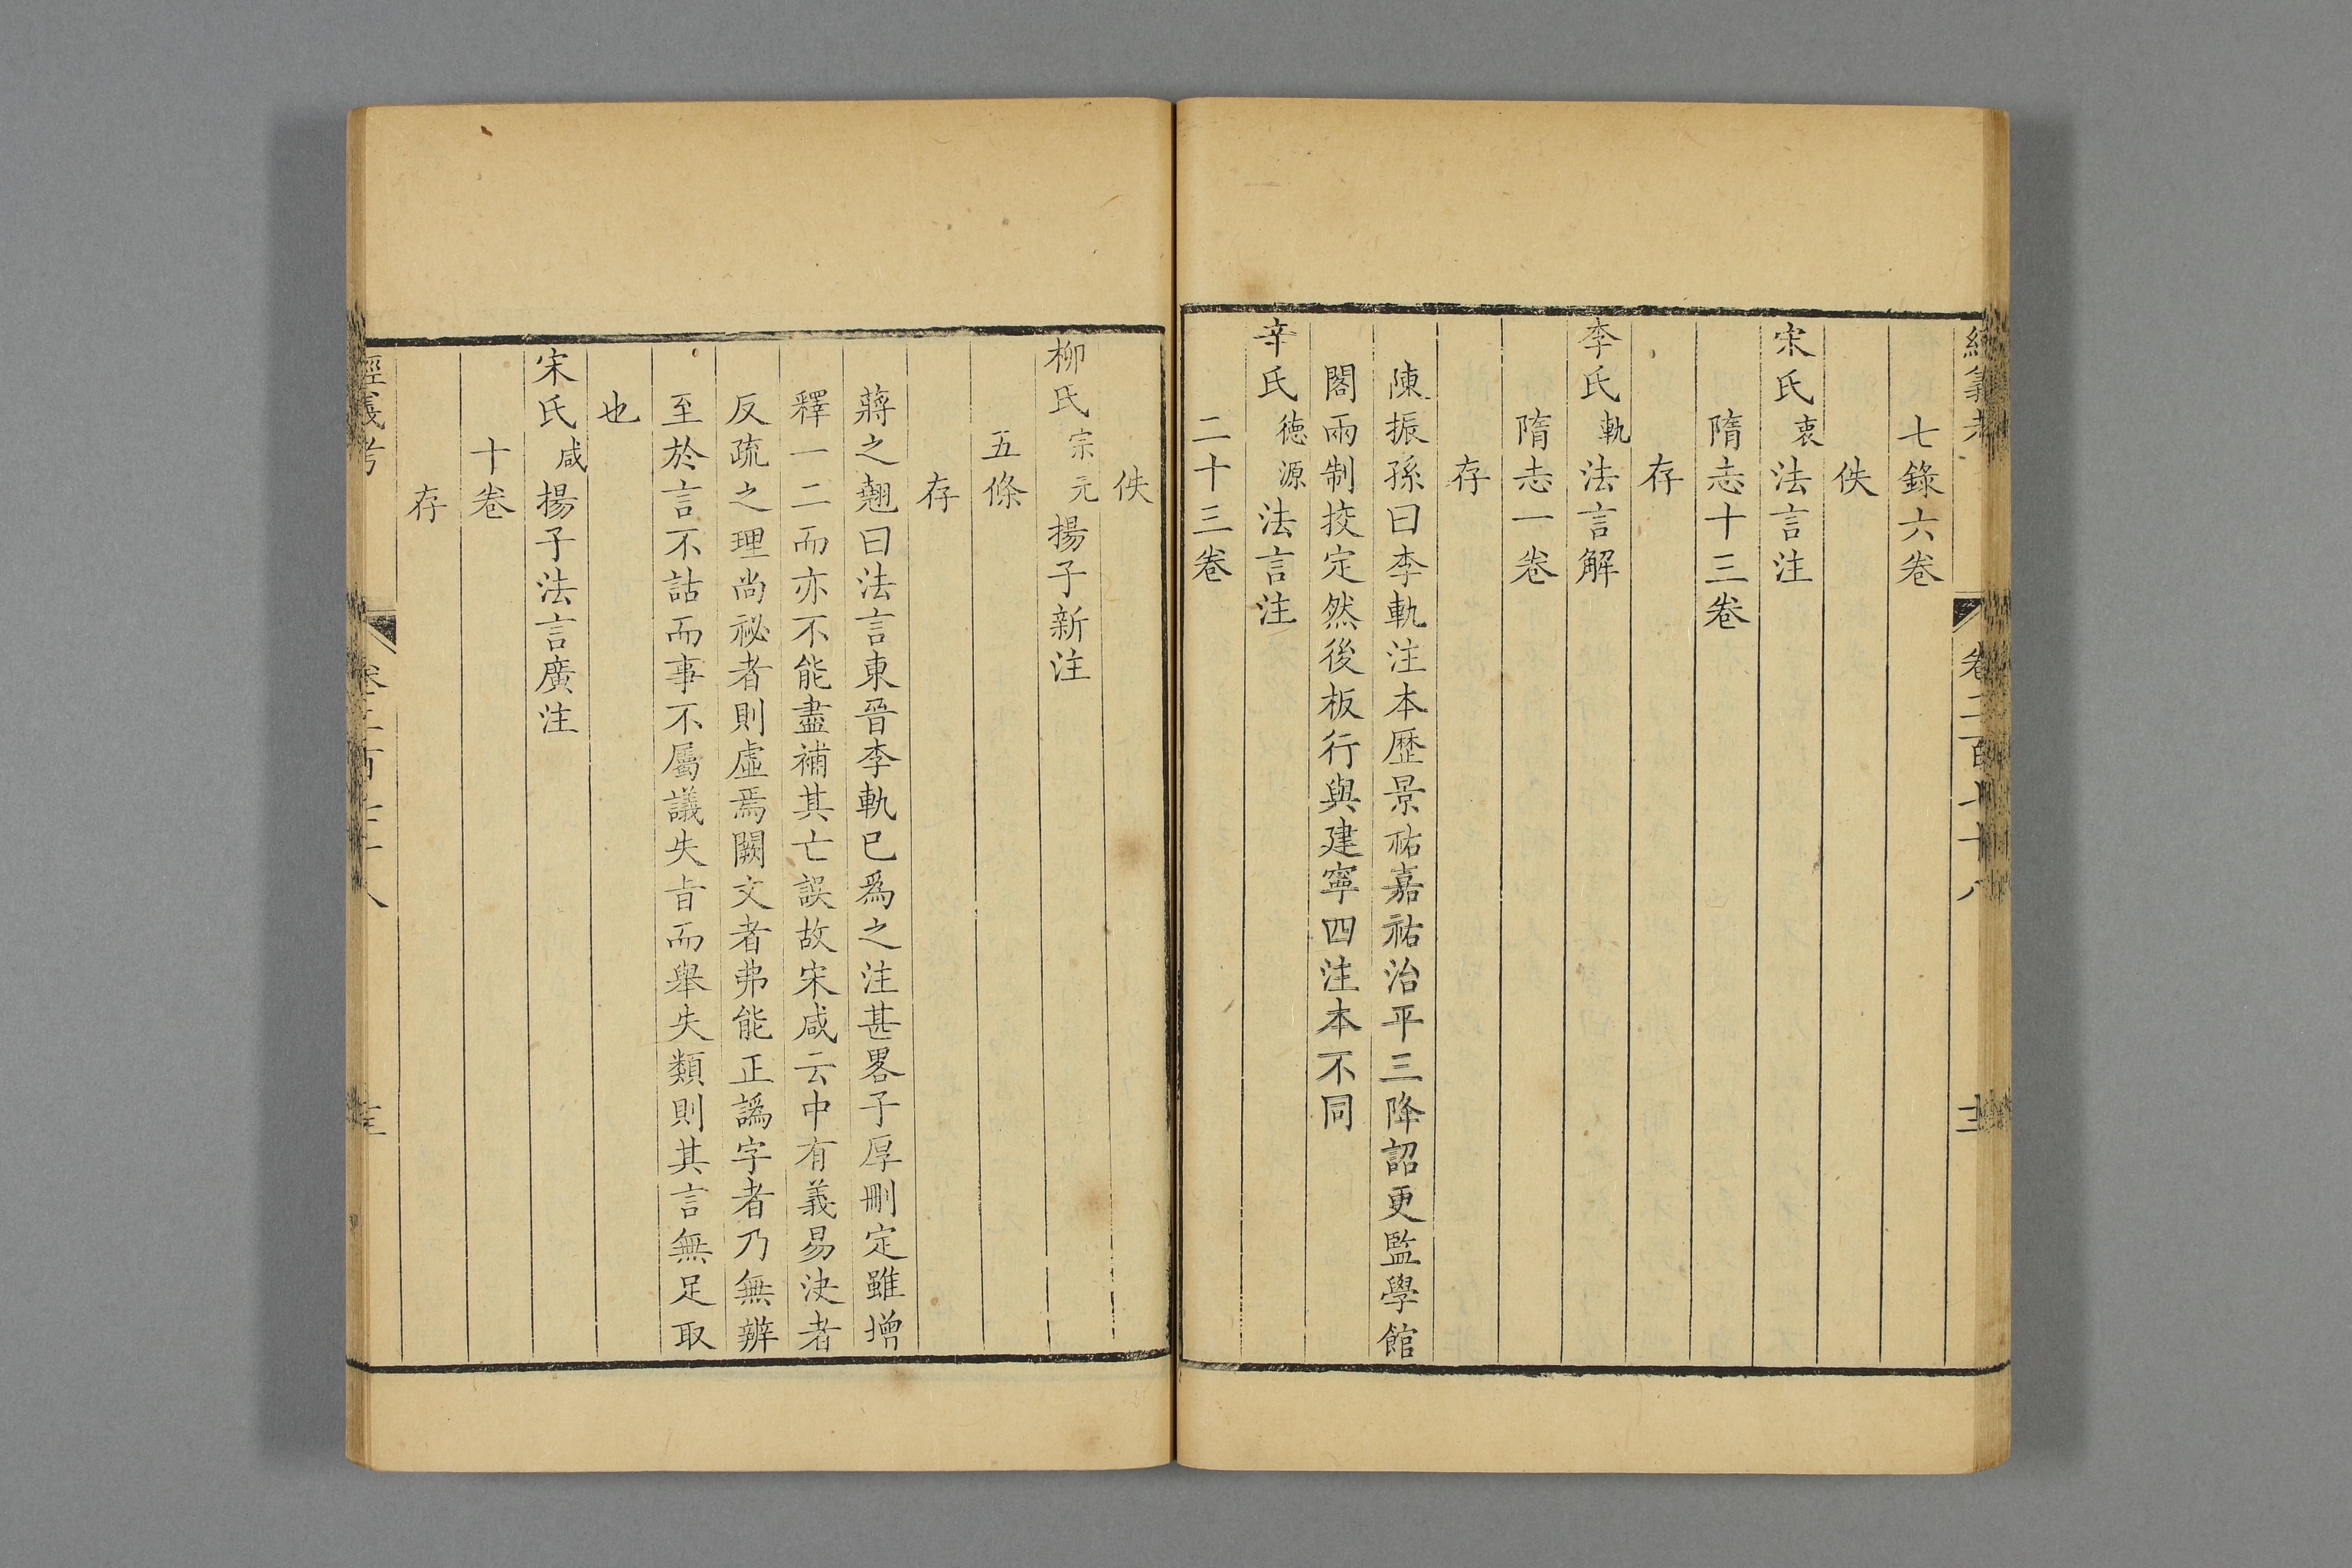 經義考 卷二百七十八
七錄六卷
佚
宋氏衷法言注
隋志十三卷
存
李氏軌法言解
隋志一卷
存
陳振孫曰李軌注本歷景祐嘉祐治平三降詔更監學館
閣兩制挍定然後板行與建寧四注本不同
辛氏德源法言注
二十三卷
佚
柳氏宗元揚子新注
五條
存
蔣之翹曰法言東晉李軌已爲之注甚畧子厚刪定雖增
釋一二而亦不能盡補其亡誤故宋咸云中有義易決者
反疏之理尚祕者則虛焉闕文者弗能正譌字者乃無辨
至於言不詁而事不屬議失㫖而舉失類則其言無足取
也
宋氏咸揚子法言廣注
十卷
存
經義考 卷二百七十八